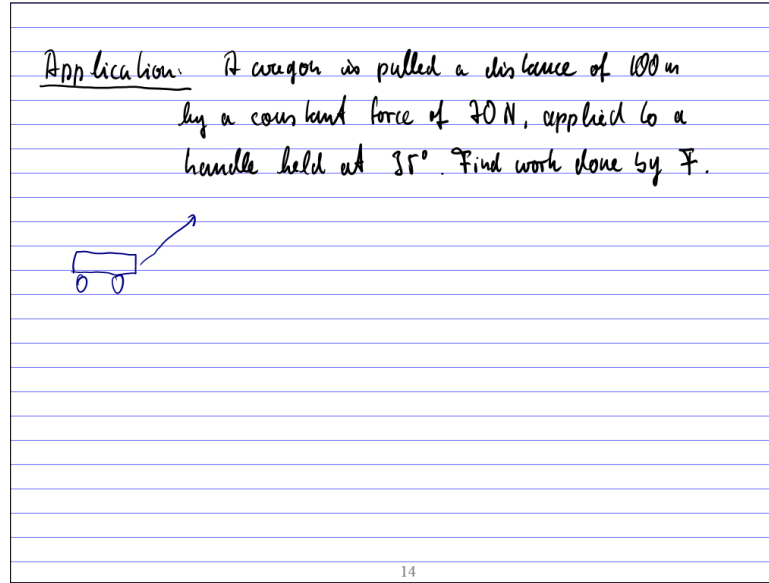 Application: A wagon is pulled a distance of 100 m
by a constant force of 70 N, applied to a
handle held at 35°. Find work done by F.
14